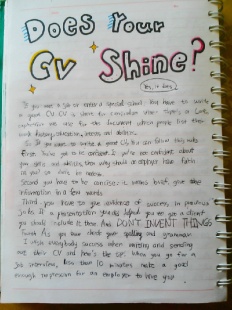 Does Your
CV Shine?
Yes, it does
If you want a job or method special school. You have to write
a good CV. CV is short for curriculum vitae. It's a
is use for the document which people list their
work history, education, interests and abilities.
So, if you want to write a good CV, you can follow this
First, you need to be confident. If you're not confident about
your skills and abilities, then why should an employer have faith
as you in
Second, you have to be concise, it means brief, give the
information in a few words.
Third, you have to give evidence of success in previous
jobs. If a presentation you did helped you to get a client
you should include it there. And DON'T INVENT THINGS
Finish, you have check your spelling and grammar.
I wish everybody success when writing and sending
out their CV and here's the tip: When you go for a
job interview, less than 10 minutes make a good
enough impression for an employer to hire you!